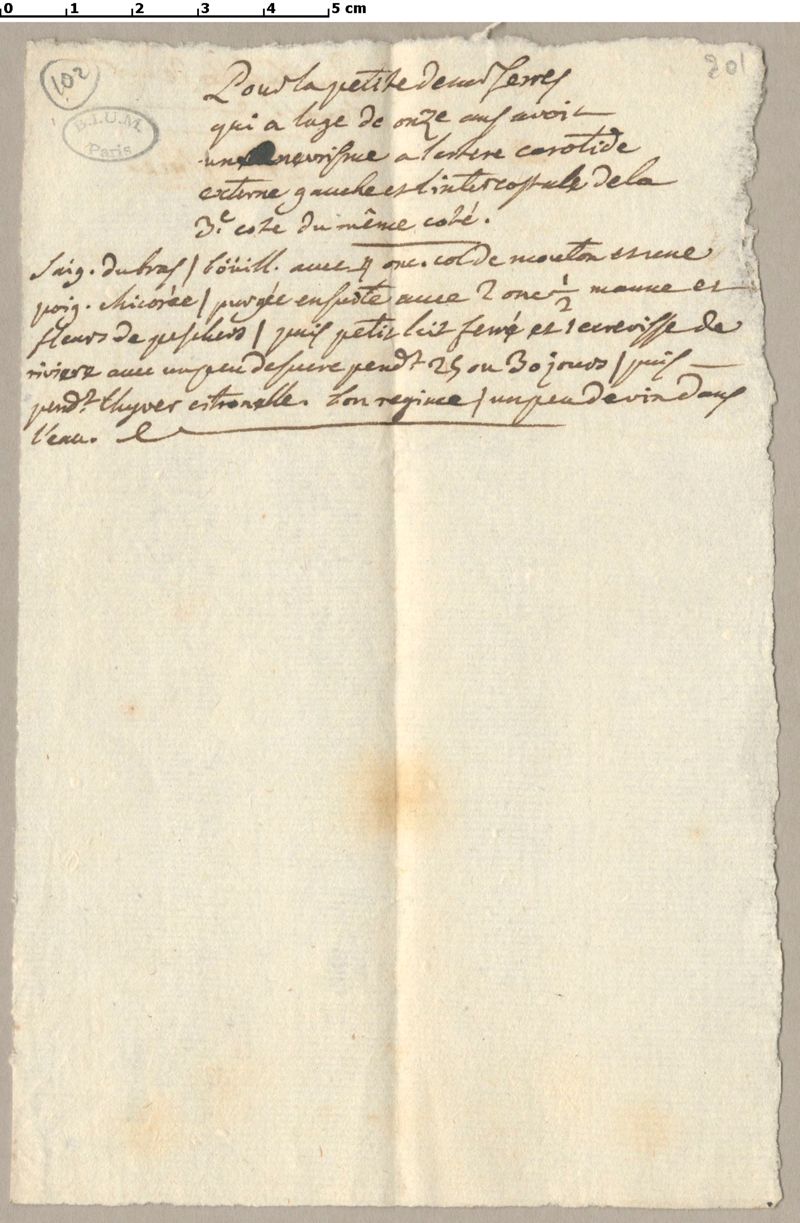 0 1 2 3 4 5 cm
102
201
B.I.U.M
Paris
Pour la petite de mr serres
qui a lage de onze ans avoit
un anevrisme a l'artere carotide
externe gauche et l'intercostale de la
3.e coste du même coté.
saig. du bras / boüill. avec 4 onc. col de mouton et une
poig. chicorée / purgée ensuite avec 2 onc 1/2 manne et
fleurs de peschers / puis petit lait ferré et 1 ecrevisse de
riviere avec un peu de sucre pendt. 25 ou 30 jours / puis
pendt. lhyver citronelle. bon regime / un peu de vin dans
l'eau.